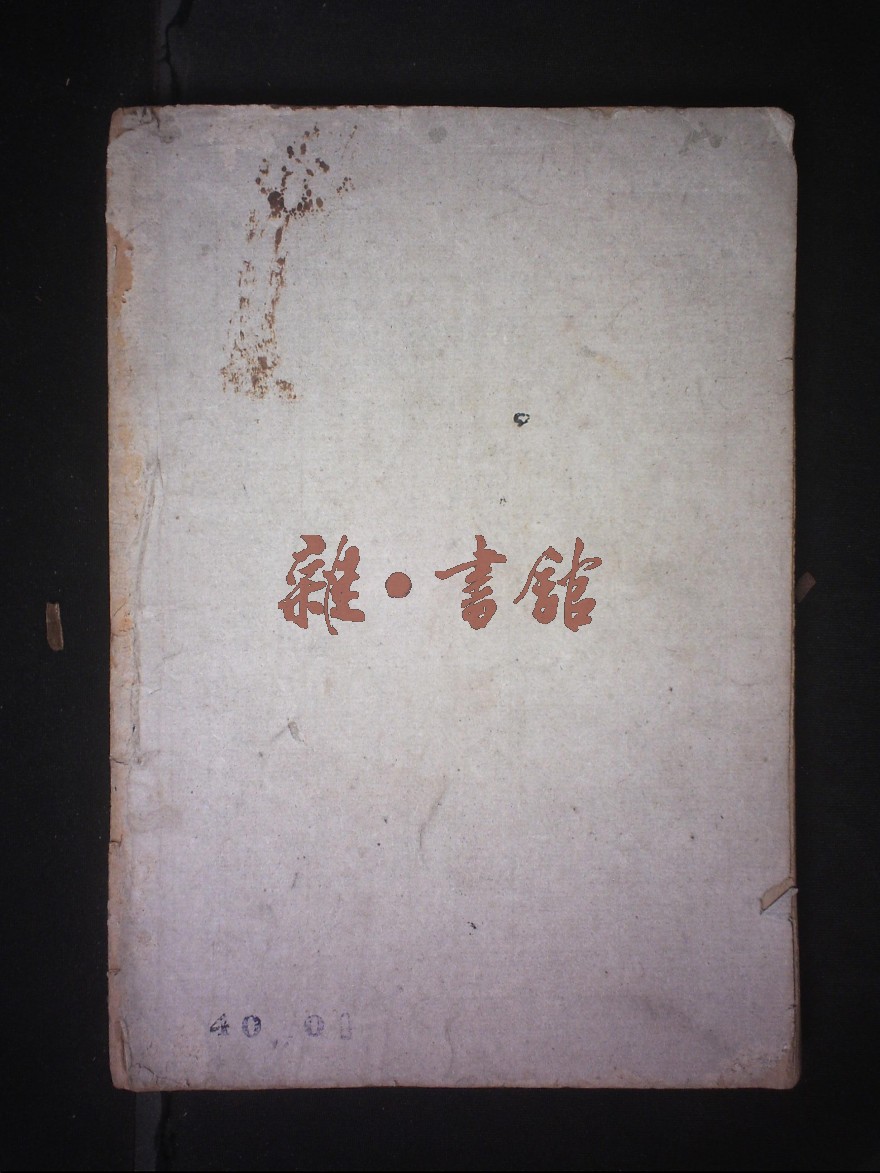 雜·書館
40 01